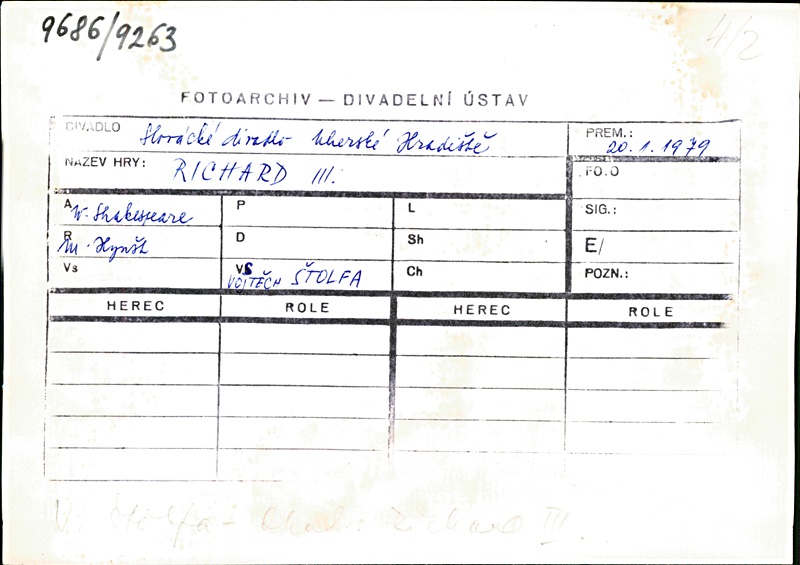 9686/9263
4/2
FOTOARCHIV — DIVADELNÍ ÚSTAV
DIVADLO Slovácké divadlo Uherské Hradiště
PREM.: 20. 1. 1979
NÁZEV HRY: RICHARD III.
FO.O
A W. Shakespeare P L SIG.:
R M. Hynšt D Sh E/
Vs VS VOJTĚCH ŠTOLFA Ch POZN.:
HEREC ROLE HEREC ROLE
V. Štolfa - Richard III.